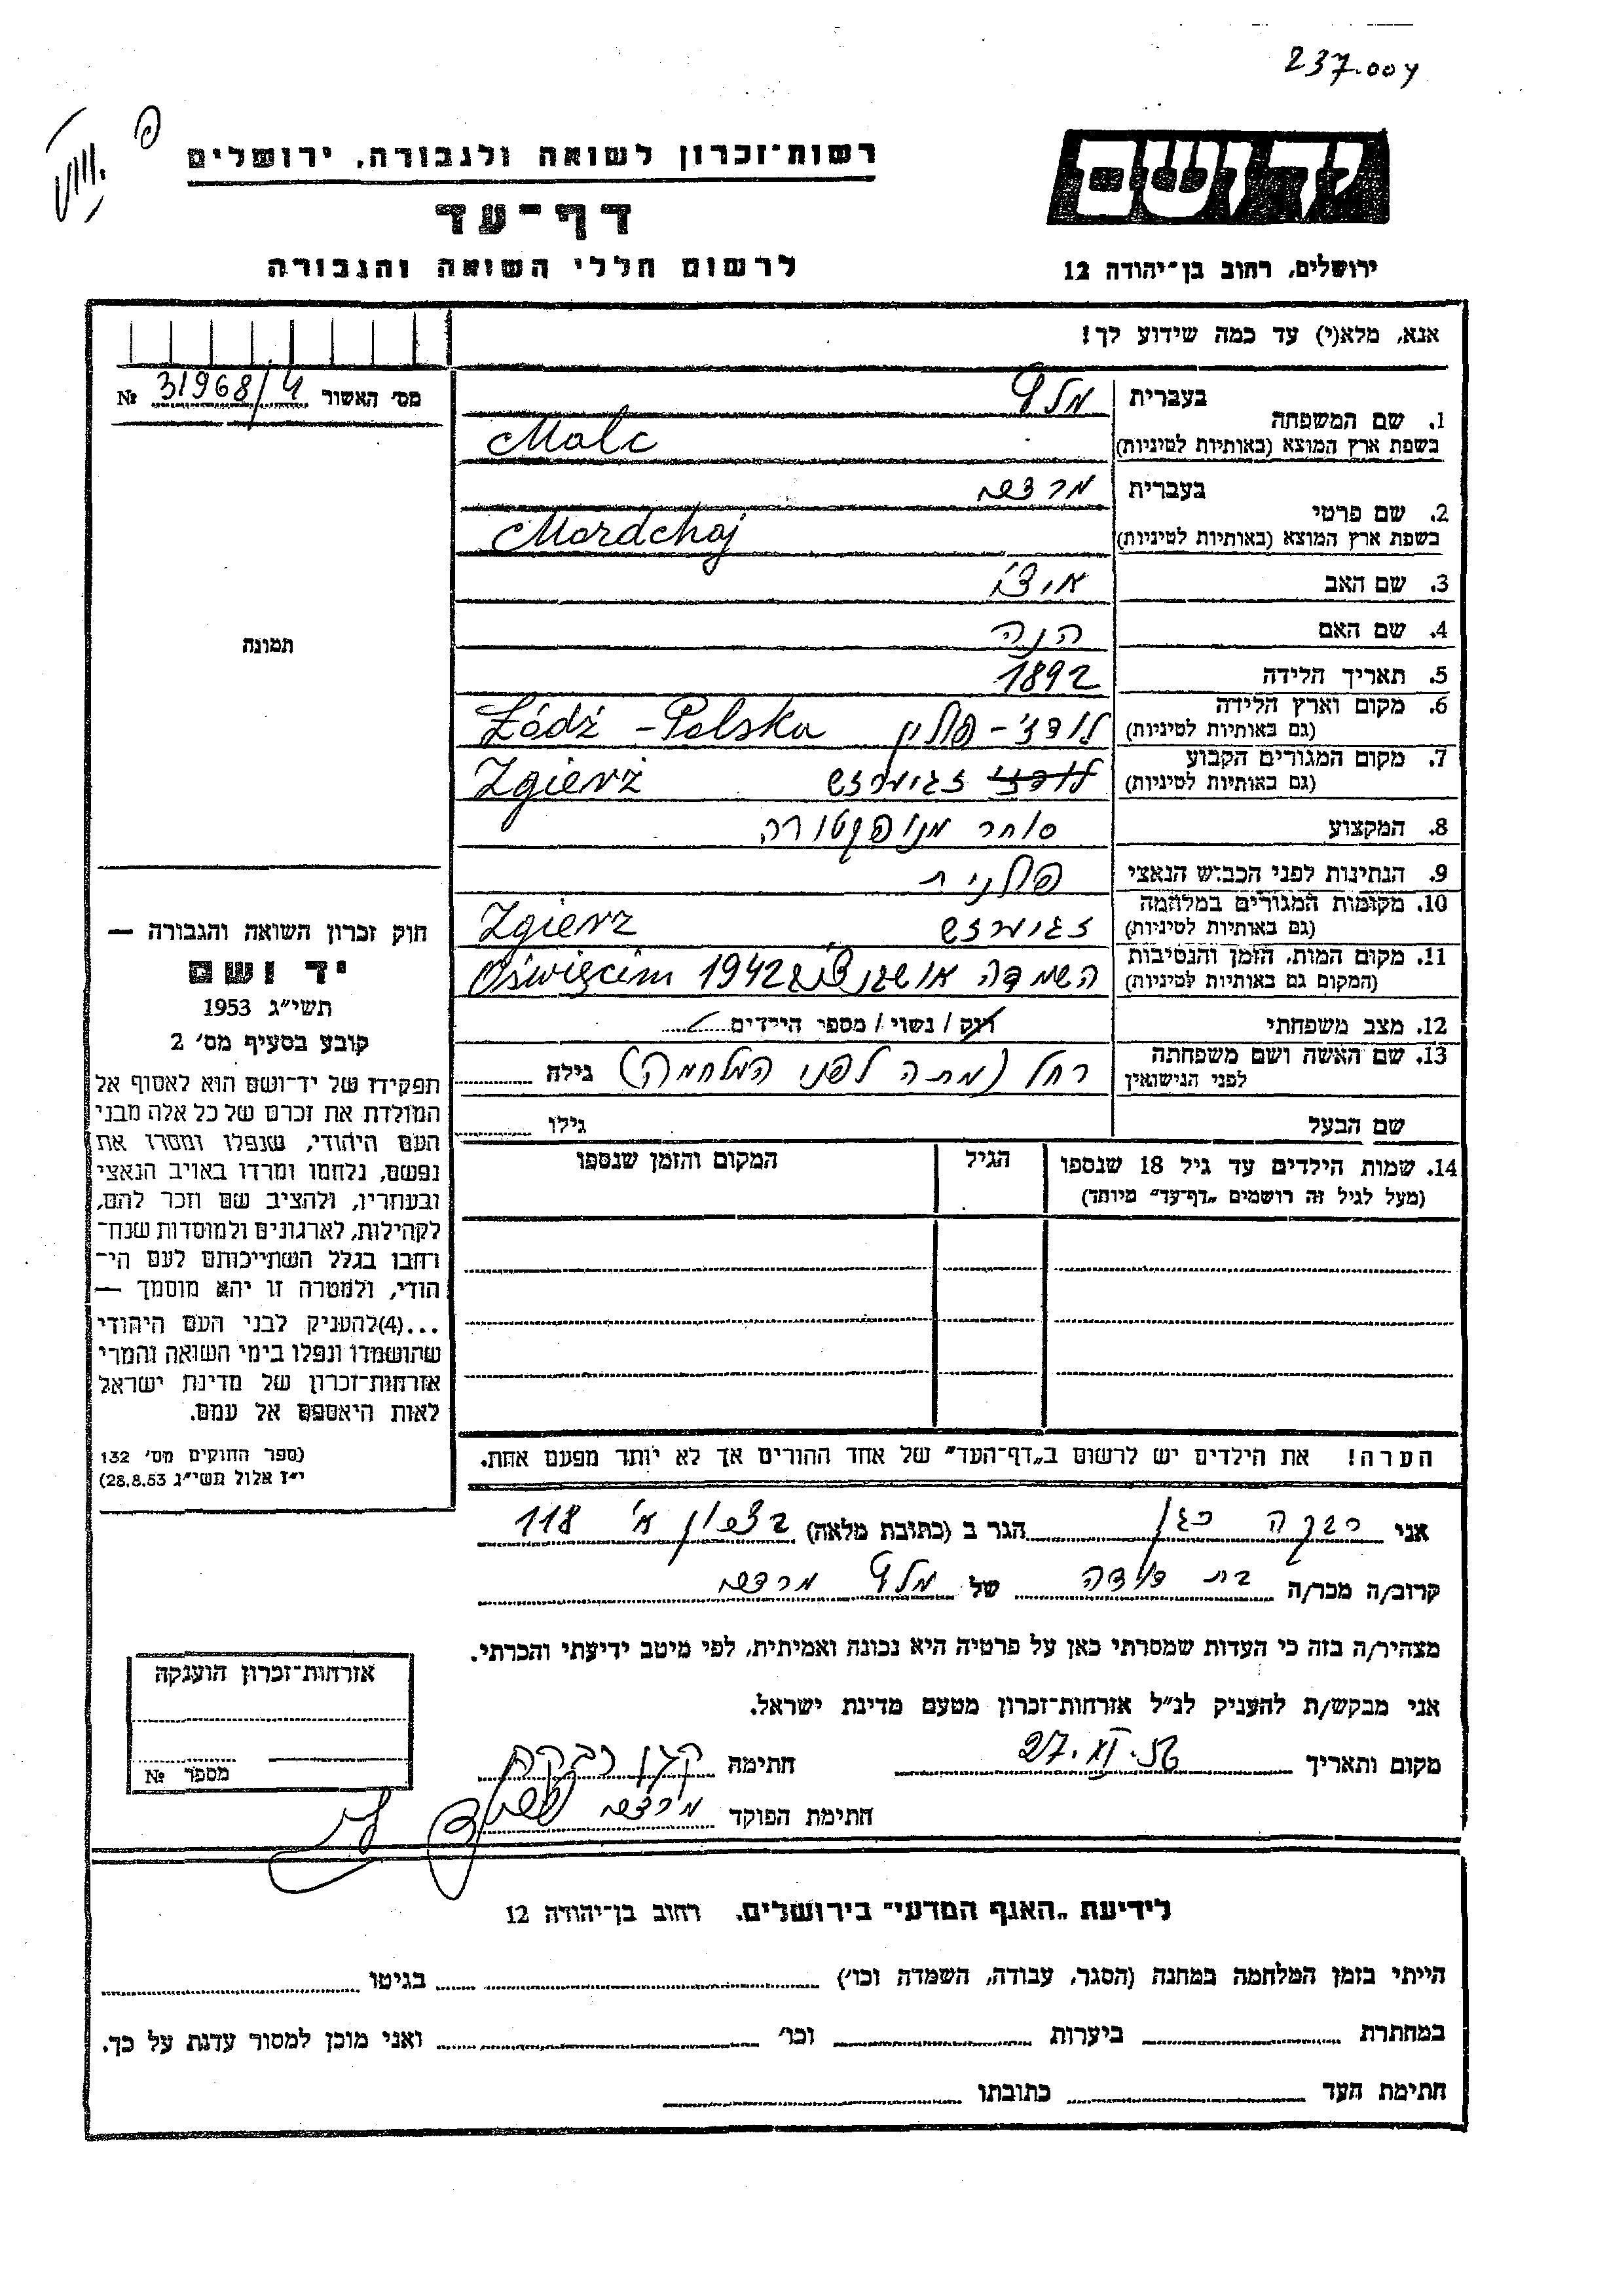 237.004
יד ושם
רשות־זכרון לשואה ולגבורה, ירושלים
דף־עד
לרשום חללי השואה והגבורה
ירושלים, רחוב בן־יהודה 12
אנא, מלא(י) עד כמה שידוע לך!
מס׳ האשור 31968/4 №
1. שם המשפחה בעברית מלץ
בשפת ארץ המוצא (באותיות לטיניות) Malc
2. שם פרטי בעברית מרדכי
בשפת ארץ המוצא (באותיות לטיניות) Mordchaj
3. שם האב איצ׳ו
4. שם האם הנה
5. תאריך הלידה 1892
6. מקום וארץ הלידה (גם באותיות לטיניות) לודז׳ - פולין Łódź - Polska
7. מקום המגורים הקבוע (גם באותיות לטיניות) לודז׳ זגירזש Zgierż
8. המקצוע סוחר מנופקטורה
9. הנתינות לפני הכבוש הנאצי פולנית
10. מקומות המגורים במלחמה (גם באותיות לטיניות) זגירזש Zgierz
11. מקום המות, הזמן והנסיבות (המקום גם באותיות לטיניות) השמדה 1942 Oświęcim
12. מצב משפחתי רוק / נשוי / מספר הילדים
13. שם האשה ושם משפחתה לפני הנישואין רחל (מתה לפני המלחמה) גילה
שם הבעל גילו
14. שמות הילדים עד גיל 18 שנספו (מעל לגיל זה רושמים „דף־עד״ מיוחד) הגיל המקום והזמן שנספו
תמונה
חוק זכרון השואה והגבורה —
יד ושם
תשי״ג 1953
קובע בסעיף מס׳ 2
תפקידו של יד־ושם הוא לאסוף אל
המולדת את זכרם של כל אלה מבני
העם היהודי, שנפלו ומסרו את
נפשם, נלחמו ומרדו באויב הנאצי
ובעוזריו, ולהציב שם וזכר להם,
לקהילות, לארגונים ולמוסדות שנח־
רבו בגלל השתייכותם לעם הי־
הודי, ולמטרה זו יהא מוסמך —
...(4)להעניק לבני העם היהודי
שהושמדו ונפלו בימי השואה והמרי
אזרחות־זכרון של מדינת ישראל
לאות היאספם אל עמם.
(ספר החוקים מס׳ 132
י״ז אלול תשי״ג 28.8.53)
הערה! את הילדים יש לרשום ב„דף־העד״ של אחד ההורים אך לא יותר מפעם אחת.
אני רבקה כגן הגר ב (כתובת מלאה) 118
קרוב/ה מכר/ה בת דודה של מלץ מרדכי
מצהיר/ה בזה כי העדות שמסרתי כאן על פרטיה היא נכונה ואמיתית, לפי מיטב ידיעתי והכרתי.
אני מבקש/ת להעניק לנ״ל אזרחות־זכרון מטעם מדינת ישראל.
מקום ותאריך חתימה כגן רבקה
חתימת הפוקד מרדכי
אזרחות־זכרון הוענקה
מספר №
לידיעת „האגף המדעי״ בירושלים, רחוב בן־יהודה 12
הייתי בזמן המלחמה במחנה (הסגר, עבודה, השמדה וכו׳) בגיטו
במחתרת ביערות וכו׳ ואני מוכן למסור עדות על כך.
חתימת העד כתובתו